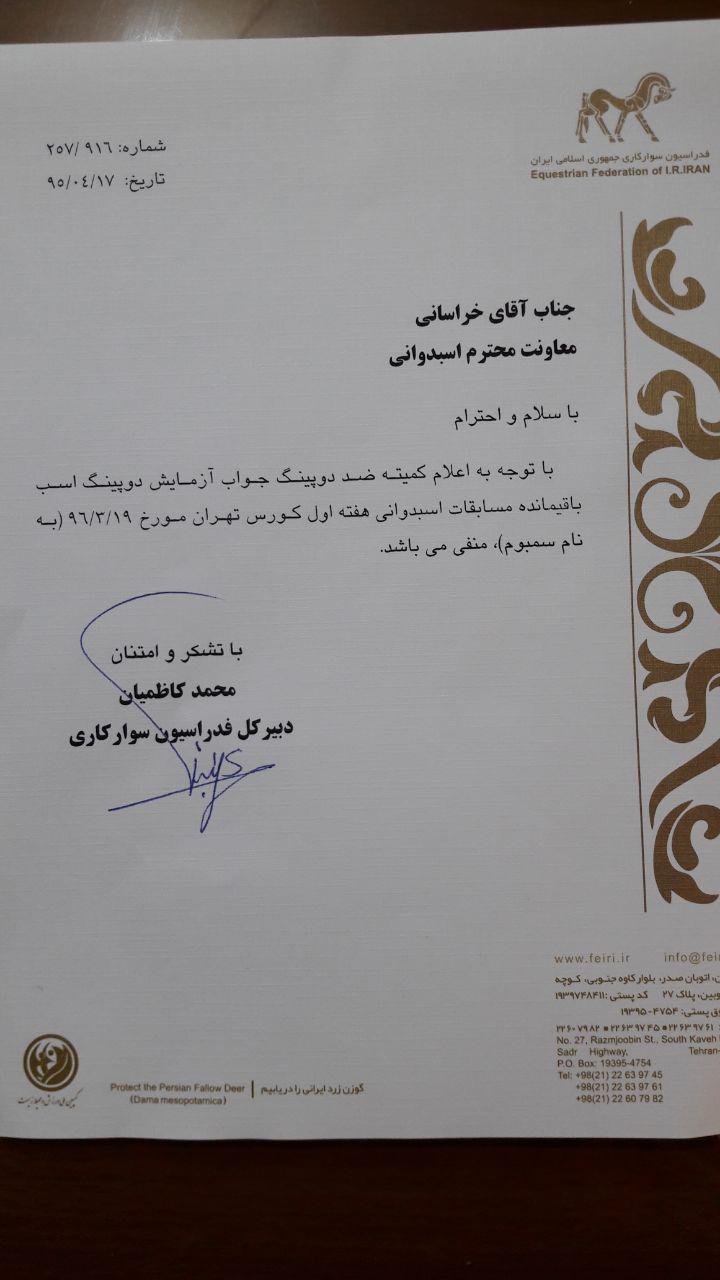 فدراسیون سوارکاری جمهوری اسلامی ایران
Equestrian Federation of I.R.IRAN
شماره: ۲۵۷/۹۱۶
تاریخ: ۹۵/۰۴/۱۷
جناب آقای خراسانی
معاونت محترم اسبدوانی
با سلام و احترام
با توجه به اعلام کمیته ضد دوپینگ جواب آزمایش دوپینگ اسب
باقیمانده مسابقات اسبدوانی هفته اول کورس تهران مورخ ۹۶/۳/۱۹ (به
نام سمبوم)، منفی می باشد.
با تشکر و امتنان
محمد کاظمیان
دبیرکل فدراسیون سوارکاری
www.feiri.ir info@feir
اتوبان صدر، بلوار کاوه جنوبی، کوچه
پلاک ۲۷ کد پستی: ۱۹۳۹۷۴۸۴۱۱
پستی: ۴۷۵۴-۱۹۳۹۵
۲۲۶۰۷۹۸۲ ■ ۲۲۶۳۹۷۴۵ ■ ۲۲۶۳۹۷۶۱
No. 27, Razmjoobin St., South Kaveh
Sadr Highway, Tehran-
P.O. Box: 19395-4754
Tel: +98(21) 22 63 97 45
+98(21) 22 63 97 61
+98(21) 22 60 79 82
Protect the Persian Fallow Deer | گوزن زرد ایرانی را دریابیم
(Dama mesopotamica)